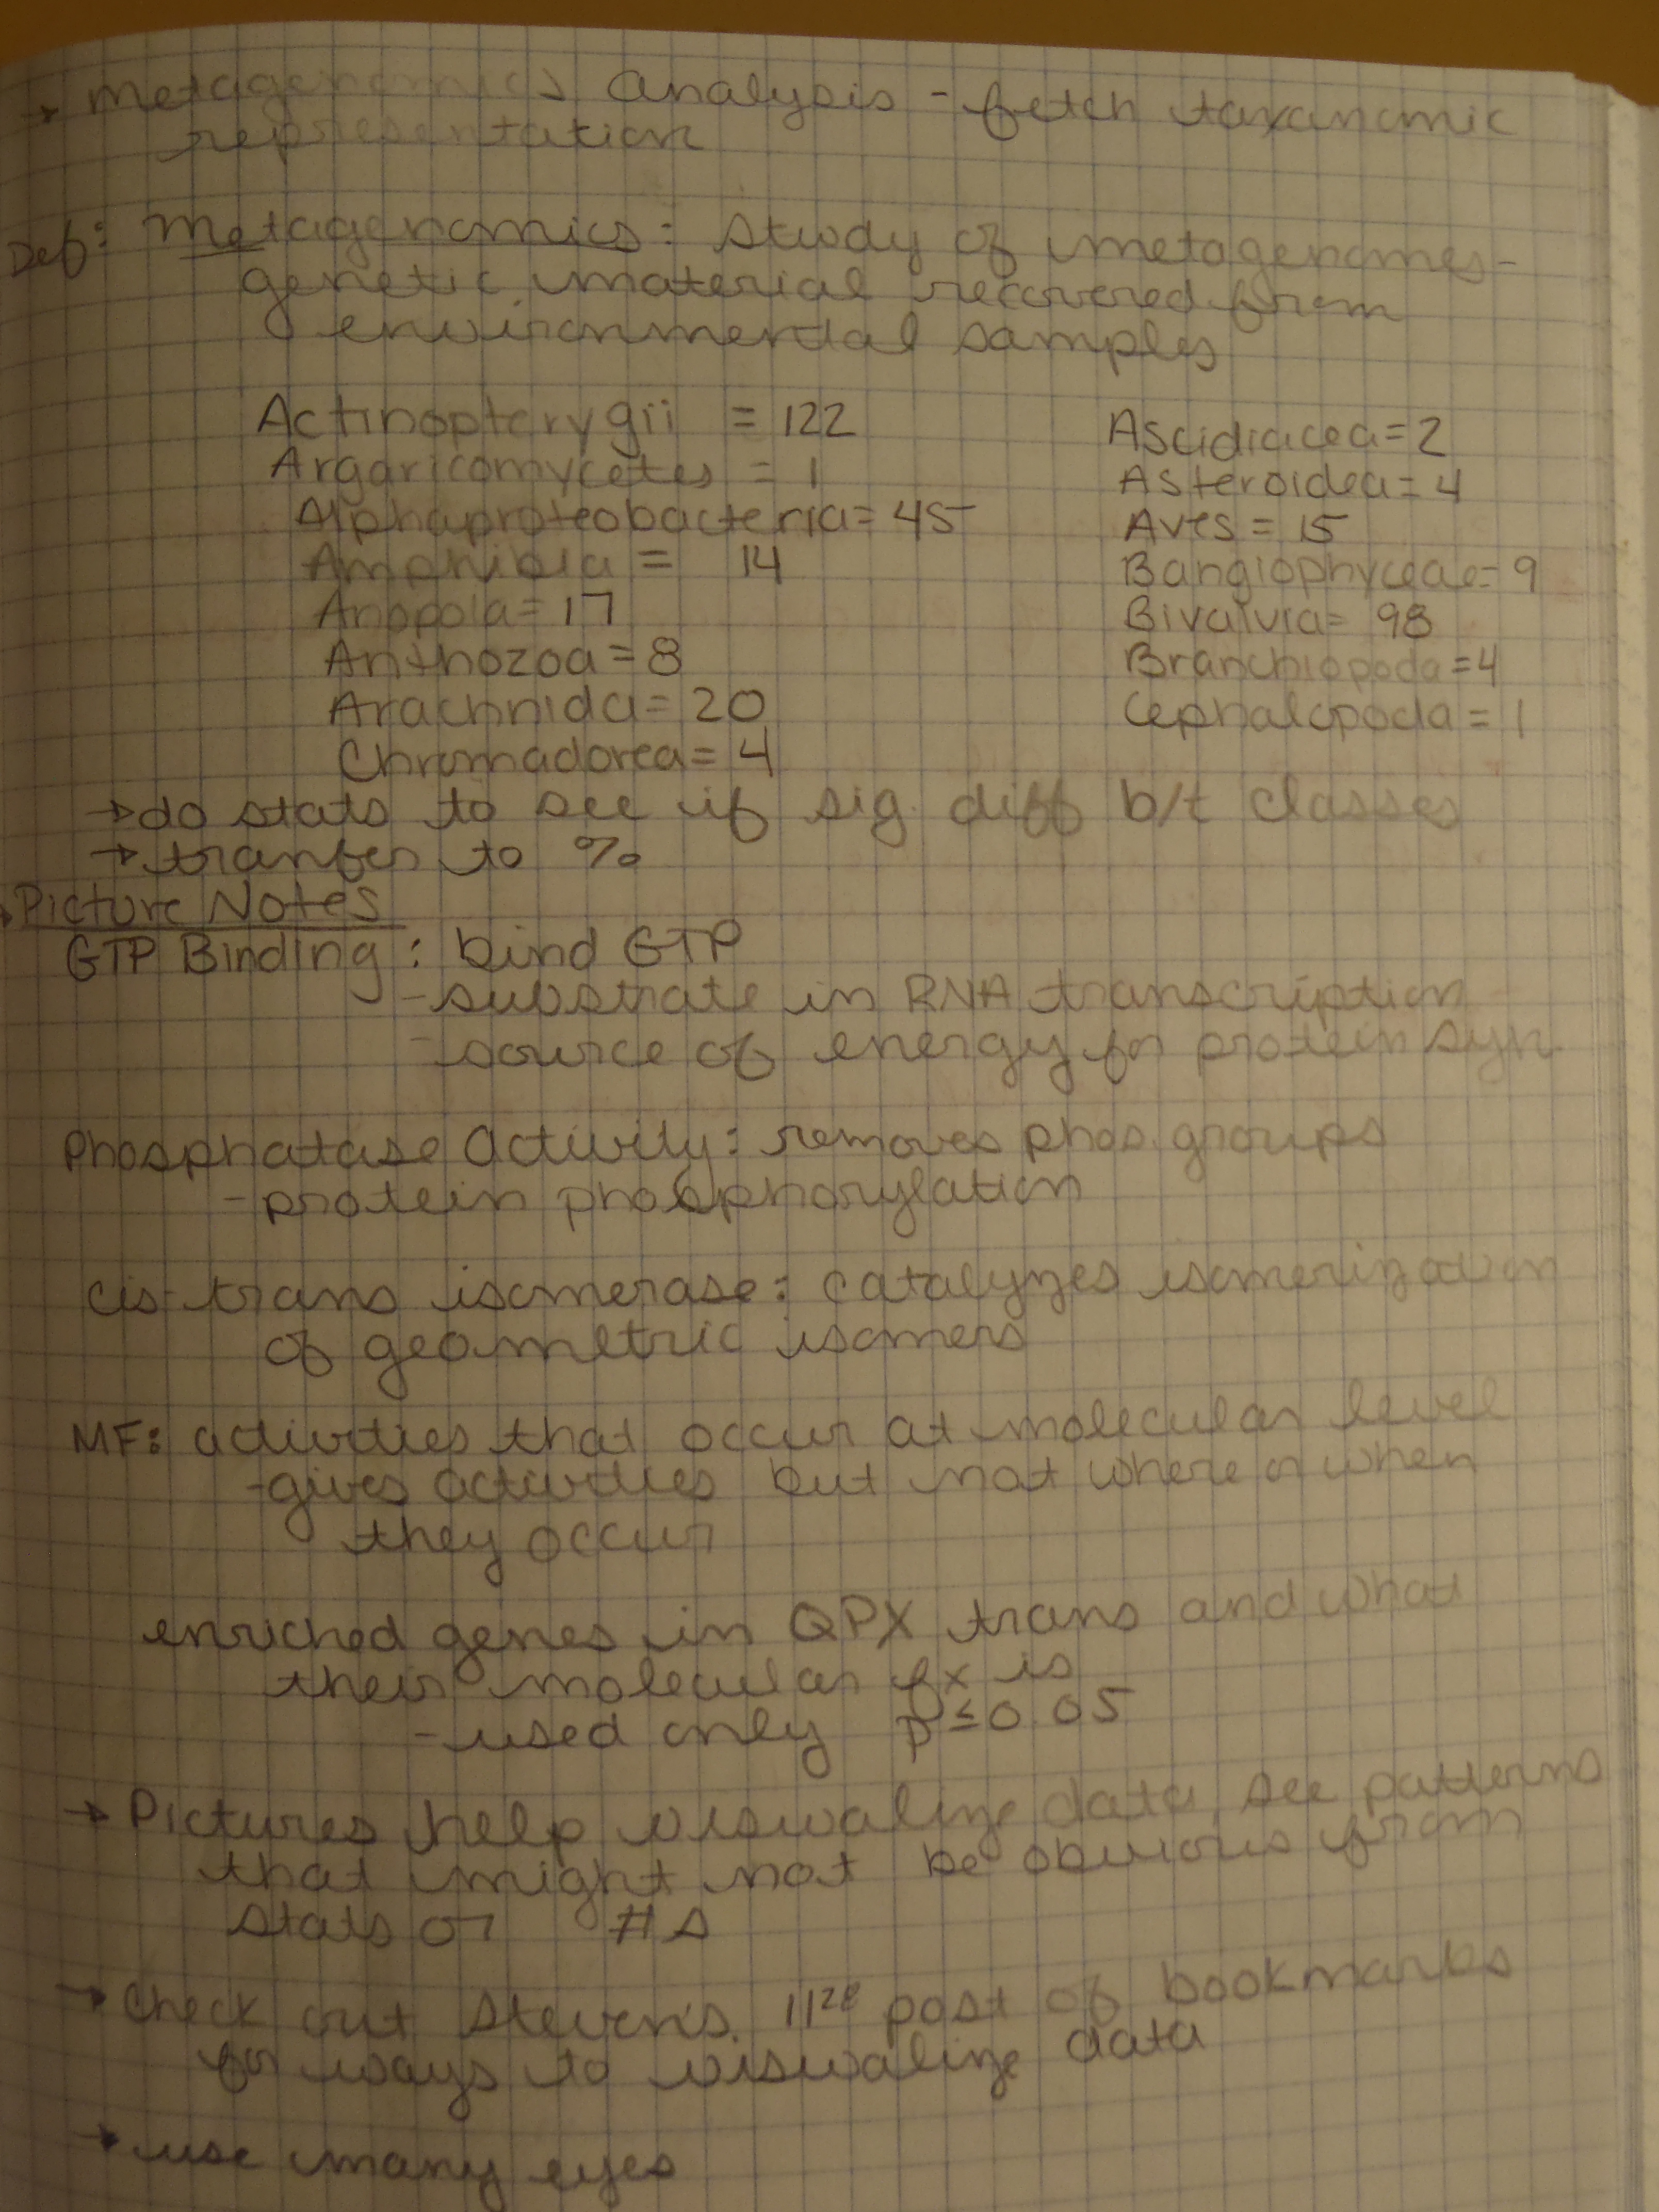 → metagenomics analysis - fetch taxanomic
representation
Def: Metagenomics: study of metagenomes-
genetic material recovered from
environmental samples
Actinopterygii = 122
Argaricomycetes = 1
Alphaproteobacteria = 45
Amphibia = 14
Anopola = 17
Anthozoa = 8
Arachnida = 20
Chromadorea = 4
Ascidiacea = 2
Asteroidea = 4
Aves = 15
Bangiophyceae = 9
Bivalvia = 98
Branchiopoda = 4
Cephalopoda = 1
→ do stats to see if sig. diff b/t classes
→ tranfer to %
Picture Notes
GTP Binding: bind GTP
- substrate in RNA transcription
- source of energy for protein syn
Phosphatase activity: removes phos. groups
- protein phosphorylation
cis-trans isomerase: catalyzes isomerization
of geometric isomers
MF: activities that occur at molecular level
- gives activities but not where or when
they occur
enriched genes in QPX trans and what
their molecular fx is
- used only p ≤ 0.05
→ Pictures help visualize data, see patterns
that might not be obvious from
stats or #s
→ Check out Steven's 11/28 post of bookmarks
for ways to visualize data
→ use many eyes